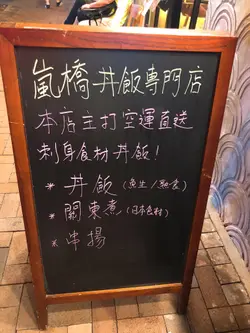 嵐橋丼飯專門店
本店主打空運直送
刺身食材丼飯!
* 丼飯 (魚生/熟食)
* 關東煮 (日本食材)
* 串揚